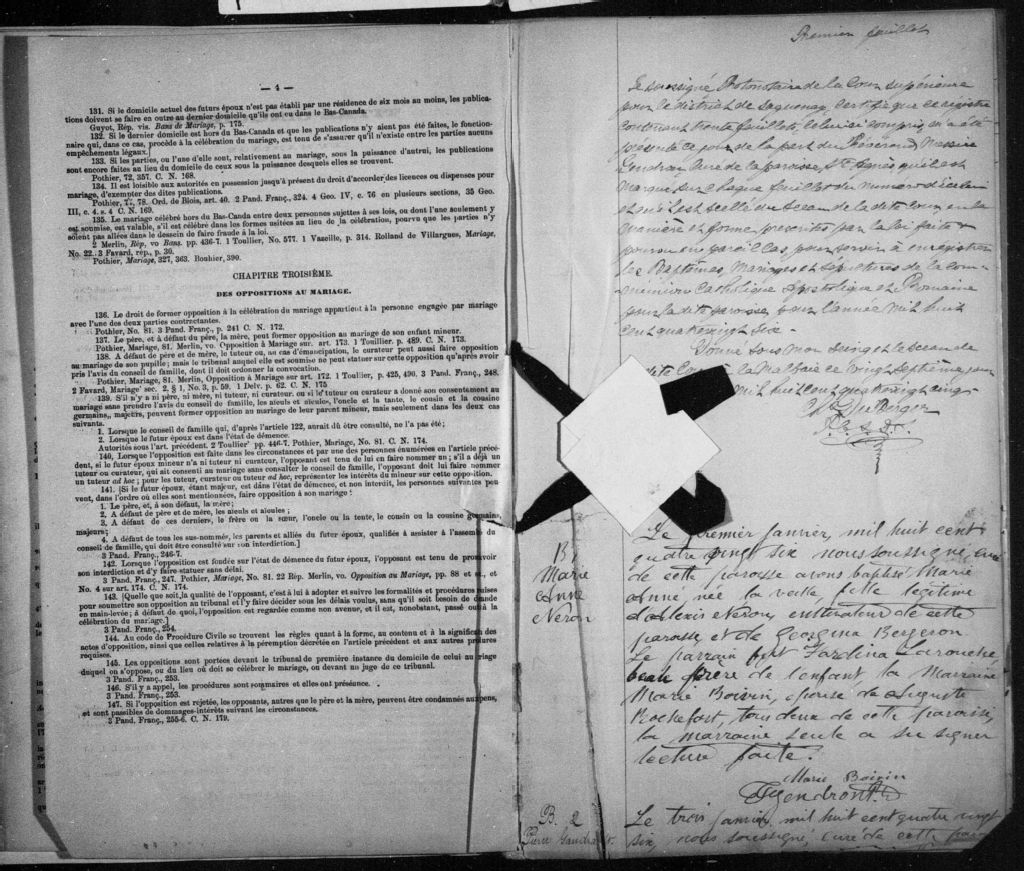 — 4 —
131. Si le domicile actuel des futurs époux n'est pas établi par une résidence de six mois au moins, les publica-
tions doivent se faire en outre au dernier domicile qu'ils ont eu dans le Bas-Canada.
Guyot, Rép. vis. Bans de Mariage, p. 175.
132. Si le dernier domicile est hors du Bas-Canada et que les publications n'y aient pas été faites, le fonction-
naire qui, dans ce cas, procède à la célébration du mariage, est tenu de s'assurer qu'il n'existe entre les parties aucuns
empêchements légaux.
133. Si les parties, ou l'une d'elle sont, relativement au mariage, sous la puissance d'autrui, les publications
sont encore faites au lieu du domicile de ceux sous la puissance desquels elles se trouvent.
Pothier, 72, 357. C. N. 168.
134. Il est loisible aux autorités en possession jusqu'à présent du droit d'accorder des licences ou dispenses pour
mariage, d'exempter des dites publications.
Pothier, T., 78. Ord. de Blois, art. 40. 2 Pand. Franç., 324. 4 Geo. IV, c. 76 en plusieurs sections, 35 Geo.
III, c. 4. s. 4 C. N. 169.
135. Le mariage célébré hors du Bas-Canda entre deux personnes sujettes à ses lois, ou dont l'une seulement y
est soumise, est valable, s'il est célébré dans les formes usitées au lieu de la célébration, pourvu que les parties n'y
soient pas allées dans le dessein de faire fraude à la loi.
2 Merlin, Rép, vo Bans. pp. 436-7. 1 Toullier, No. 577. 1 Vazeille, p. 314. Rolland de Villargues, Mariage,
No. 22. 3 Favard, rép., p. 30.
Pothier, Mariage, 327, 363. Bouhier, 390.
CHAPITRE TROISIÈME.
DES OPPOSITIONS AU MARIAGE.
136. Le droit de former opposition à la célébration du mariage appartient à la personne engagée par mariage
avec l'une des deux parties contractantes.
Pothier, No. 81. 3 Pand. Franç., p. 241 C. N. 172.
137. Le père, et à défaut du père, la mère, peut former opposition au mariage de son enfant mineur.
Pothier, Mariage, 81. Merlin, vo. Opposition à Mariage sur. art. 173. 1 Toullier. p. 489. C. N. 173.
138. A défaut de père et de mère, le tuteur ou, au cas d'émancipation, le curateur peut aussi faire opposition
au mariage de son pupille; mais le tribunal auquel elle est soumise ne peut statuer sur cette opposition qu'après avoir
pris l'avis du conseil de famille, dont il doit ordonner la convocation.
Pothier, Mariage, 81. Merlin, Opposition à Mariage sur art. 172. 1 Toullier, p. 425, 490. 3 Pand. Franç., 248.
2 Favard, Mariage sec. 2, § 1, No. 3, p. 59. 1 Delv. p. 62. C. N. 175
139. S'il n'y a ni père, ni mère, ni tuteur, ni curateur. ou si le tuteur ou curateur a donné son consentement au
mariage sans prendre l'avis du conseil de famille, les aïeuls et aïeules, l'oncle et la tante, le cousin et la cousine
germains, majeurs, peuvent former opposition au mariage de leur parent mineur, mais seulement dans les deux cas
suivants.
1. Lorsque le conseil de famille qui, d'après l'article 122, aurait dû être consulté, ne l'a pas été;
2. Lorsque le futur époux est dans l'état de démence.
Autorités sous l'art. précédent. 2 Toullier pp. 446-7. Pothier, Mariage, No. 81. C. N. 174.
140. Lorsque l'opposition est faite dans les circonstances et par une des personnes énumérées en l'article précé-
dent, si le futur époux mineur n'a ni tuteur ni curateur, l'opposant est tenu de lui en faire nommer un; s'il a déjà un
tuteur ou curateur, qui ait consenti au mariage sans consulter le conseil de famille, l'opposant doit lui faire nommer
un tuteur ad hoc; pour les tuteur, curateur ou tuteur ad hoc, représenter les intérêts du mineur sur cette opposition.
141. [Si le futur époux, étant majeur, est dans l'état de démence, et non interdit, les personnes suivantes peu-
vent, dans l'ordre où elles sont mentionnées, faire opposition à son mariage:
1. Le père, et, à son défaut, la mère;
2. A défaut de père et de mère, les aïeuls et aïeules;
3. A défaut de ces derniers, le frère ou la sœur, l'oncle ou la tante, le cousin ou la cousine germains,
majeurs;
4. A défaut de tous les sus-nommés, les parents et alliés du futur époux, qualifiés à assister à l'assemblée du
conseil de famille, qui doit être consulté sur son interdiction.]
3 Pand. Franç., 246-7.
142. Lorsque l'opposition est fondée sur l'état de démence du futur époux, l'opposant est tenu de promouvoir
son interdiction et d'y faire statuer sans délai.
3 Pand. Franç., 247. Pothier, Mariage, No. 81. 22 Rép. Merlin, vo. Opposition au Mariage, pp. 88 et s., et
No. 4 sur art. 174. C. N. 174.
143. Quelle que soit la qualité de l'opposant, c'est à lui à adopter et suivre les formalités et procédures requises
pour soumettre son opposition au tribunal et l'y faire décider sous les délais voulus, sans qu'il soit besoin de demande
en main-levée; à défaut de quoi, l'opposition est regardée comme non avenue, et il est, nonobstant, passé outre à la
célébration du mariage.]
3 Pand. Franç., 254.
144. Au code de Procédure Civile se trouvent les règles quant à la forme, au contenu et à la signification des
actes d'opposition, ainsi que celles relatives à la péremption décrétée en l'article précédent et aux autres procédures
requises.
145. Les oppositions sont portées devant le tribunal de première instance du domicile de celui au mariage
duquel on s'oppose, ou du lieu où doit se célébrer le mariage, ou devant un juge de ce tribunal.
3 Pand. Franç., 253.
146. S'il y a appel, les procédures sont sommaires et elles ont préséance.
3 Pand. Franç., 253.
147. Si l'opposition est rejetée, les opposants, autres que le père et la mère, peuvent être condamnés aux dépens,
et sont passibles de dommages-intérêts suivant les circonstances.
3 Pand. Franç., 255-6. C. N. 179.
Premier feuillet
Je soussigné Protonotaire de la Cour supérieure
pour le district de Saguenay, Certifie que ce registre
contenant trente feuillets, celui-ci compris, m'a été
présenté ce jour de la part du Révérend Messire
Gendron, Curé de la paroisse, Ste Agnès qu'il est
marqué sur chaque feuillet du numéro d'icelui
et qu'il est scellé du sceau de la dite Cour, en la
manière et forme prescrites par la loi faite &
pourvue en pareil cas, pour servir à enregistrer
les Baptêmes, Mariages et Sépultures de la Com-
munion Catholique Apostolique et Romaine
pour la dite paroisse, pour l'année mil huit
cent quatrevingt six -
Donné sous mon seing et le sceau de
dite Cour à la Malbaie ce vingt septième jour
mil huit cent quatrevingt cinq
P. C. S. D. S.
B 1
Marie
Anne
Neron
Le premier Janvier, mil huit cent
quatre vingt six nous soussigné, curé
de cette paroisse avons baptisé Marie
Anne, née la veille, fille légitime
d'Alexis Neron, cultivateur de cette
paroisse et de Georgina Bergeron
Le parrain fut Jardina Larouche
beau frère de l'enfant la marraine
Marie Boivin, épouse de Auguste
Rochefort, tous deux de cette paroisse,
la marraine seule a su signer
lecture faite.
Marie Boivin
Gendron Ptr.
B. 2
Pierre Gaudreault
Le trois janvier, mil huit cent quatre vingt
six, nous soussigné, curé de cette paroi